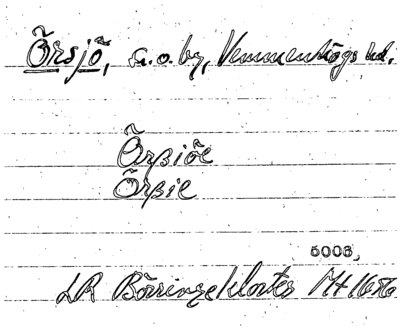 Örsjö, sn. o. by, Vemmenhögs hd.
Örsiöe
Örsie
5006
LR Börringekloster Mt 1656